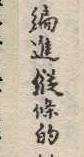 編進縱條的